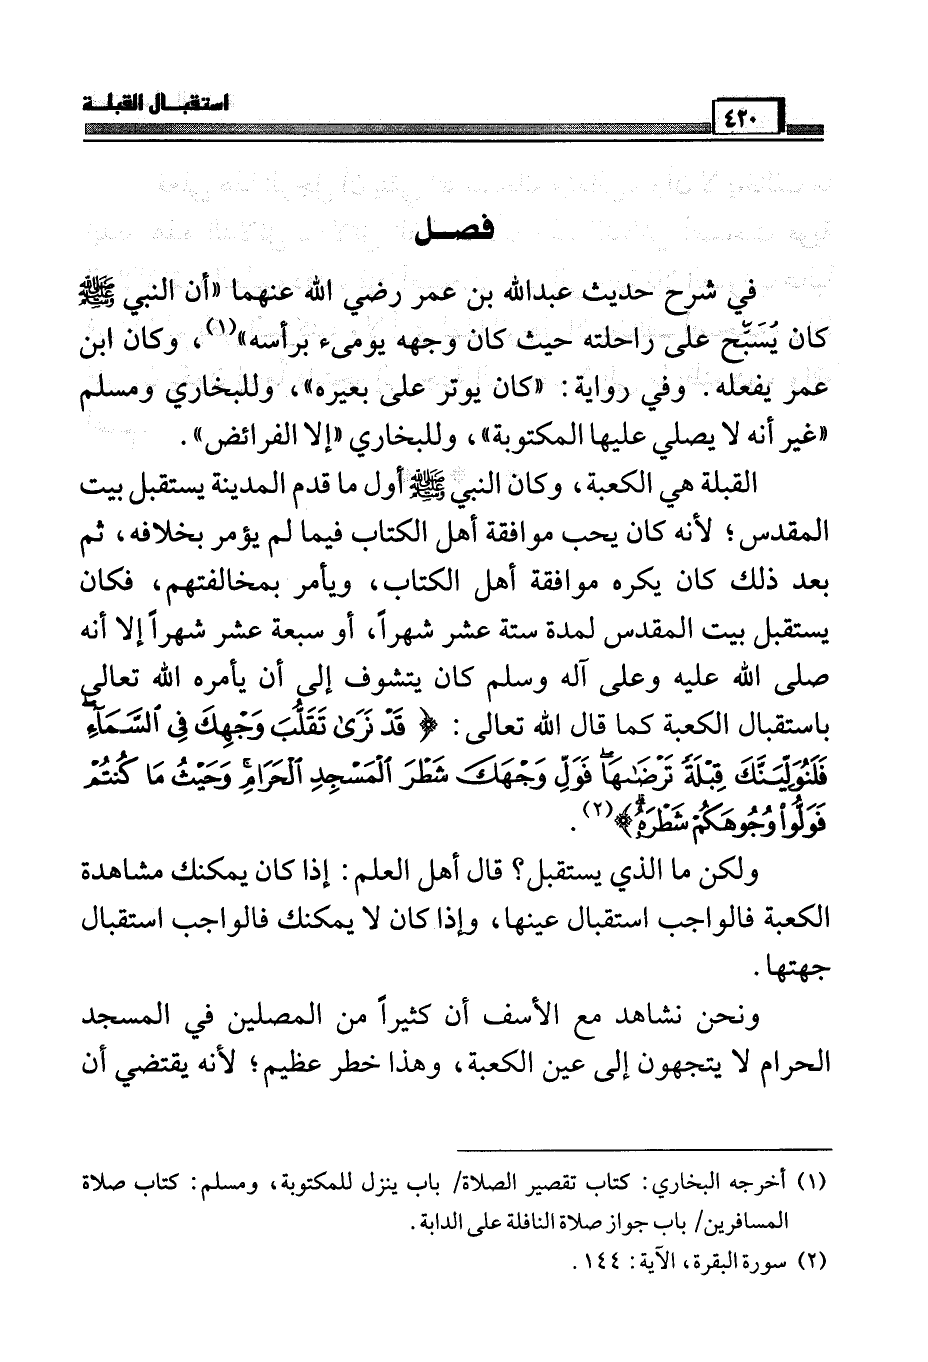 استقبال القبلة
٤٢٠
فصل
في شرح حديث عبدالله بن عمر رضي الله عنهما «أن النبي ﷺ
كان يُسَبِّح على راحلته حيث كان وجهه يومىء برأسه»(١)، وكان ابن
عمر يفعله. وفي رواية: «كان يوتر على بعيره»، وللبخاري ومسلم
«غير أنه لا يصلي عليها المكتوبة»، وللبخاري «إلا الفرائض».
القبلة هي الكعبة، وكان النبي ﷺ أول ما قدم المدينة يستقبل بيت
المقدس؛ لأنه كان يحب موافقة أهل الكتاب فيما لم يؤمر بخلافه، ثم
بعد ذلك كان يكره موافقة أهل الكتاب، ويأمر بمخالفتهم، فكان
يستقبل بيت المقدس لمدة ستة عشر شهراً، أو سبعة عشر شهراً إلا أنه
صلى الله عليه وعلى آله وسلم كان يتشوف إلى أن يأمره الله تعالى
باستقبال الكعبة كما قال الله تعالى: ﴿ قَدْ نَرَىٰ تَقَلُّبَ وَجْهِكَ فِي ٱلسَّمَآءِۖ
فَلَنُوَلِّيَنَّكَ قِبْلَةً تَرْضَىٰهَاۚ فَوَلِّ وَجْهَكَ شَطْرَ ٱلْمَسْجِدِ ٱلْحَرَامِۚ وَحَيْثُ مَا كُنتُمْ
فَوَلُّوا۟ وُجُوهَكُمْ شَطْرَهُۥۗ ﴾(٢).
ولكن ما الذي يستقبل؟ قال أهل العلم: إذا كان يمكنك مشاهدة
الكعبة فالواجب استقبال عينها، وإذا كان لا يمكنك فالواجب استقبال
جهتها.
ونحن نشاهد مع الأسف أن كثيراً من المصلين في المسجد
الحرام لا يتجهون إلى عين الكعبة، وهذا خطر عظيم؛ لأنه يقتضي أن
(١) أخرجه البخاري: كتاب تقصير الصلاة/ باب ينزل للمكتوبة، ومسلم: كتاب صلاة
المسافرين/ باب جواز صلاة النافلة على الدابة.
(٢) سورة البقرة، الآية: ١٤٤.